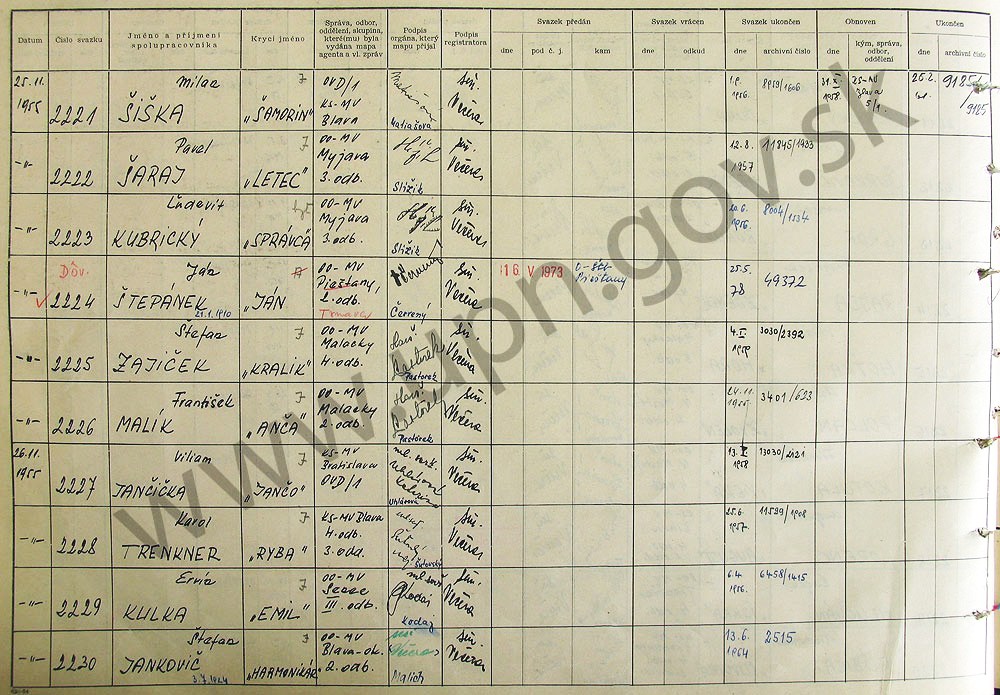 Datum
Číslo svazku
Jméno a příjmení spolupracovníka
Krycí jméno
Správa, odbor, oddělení, skupina, které(mu) byla vydána mapa agenta a vl. zpráv
Podpis orgána, který mapu přijal
Podpis registrátora
Svazek předán
dne
pod č. j.
kam
Svazek vrácen
dne
odkud
Svazek ukončen
dne
archivní číslo
Obnoven
dne
kým, správa, odbor, oddělení
Ukončen
dne
archivní číslo
25.11. 1955
2221
Milan ŠIŠKA
7
„ŠAMORIN“
OVD/1 KS-MV Blava
Matiašová
Večera
1956.
8959/1606
1958.
KS-MV Blava 5/1
26.2.
9185
-"-
2222
Pavel ŠARAJ
7
„LETEC“
OO-MV Myjava 3. odb.
Stižik
Večera
12.8. 1957
11845/1983
-"-
2223
Ľudevit KUBRICKÝ
„SPRÁVCA“
OO-MV Myjava 3. odb.
Stižik
Večera
20.6. 1956.
8004/1534
-"-
Dôv.
2224
Ján ŠTEPÁNEK
21.1.1910
„JÁN
OO-MV Piešťany, 2. odb.
Trnava
Červený
Večera
16 V 1973
Piešťany
25.5. 78
49372
-"-
2225
Štefan ZAJIČEK
7
„KRALIK“
OO-MV Malacky 4. odb.
Pastorek
Večera
3030/2392
-"-
2226
František MALÍK
7
„ANČA“
OO-MV Malacky 2. odb.
Pastorek
Večera
24.11.
3401/623
26.11. 1955
2227
Viliam JANČIČKA
7
„JANČO“
KS-MV Bratislava OVD/1
Uhlárová
Večera
1958
13030/2121
-"-
2228
Karol TRENKNER
7
„RYBA“
KS-MV Blava 4. odb. 3. odd.
Večera
25.6. 1957.
11529/1908
-"-
2229
Ervín KULKA
7
„EMIL“
OO-MV Senec III. odb.
Večera
6.4. 1956.
6458/1415
-"-
2230
Štefan JANKOVIČ
3.7.1924
7
„HARMONIKÁR“
OO-MV Blava-ok. 2. odb.
Malich
Večera
13.6. 1964
2515
www.upn.gov.sk